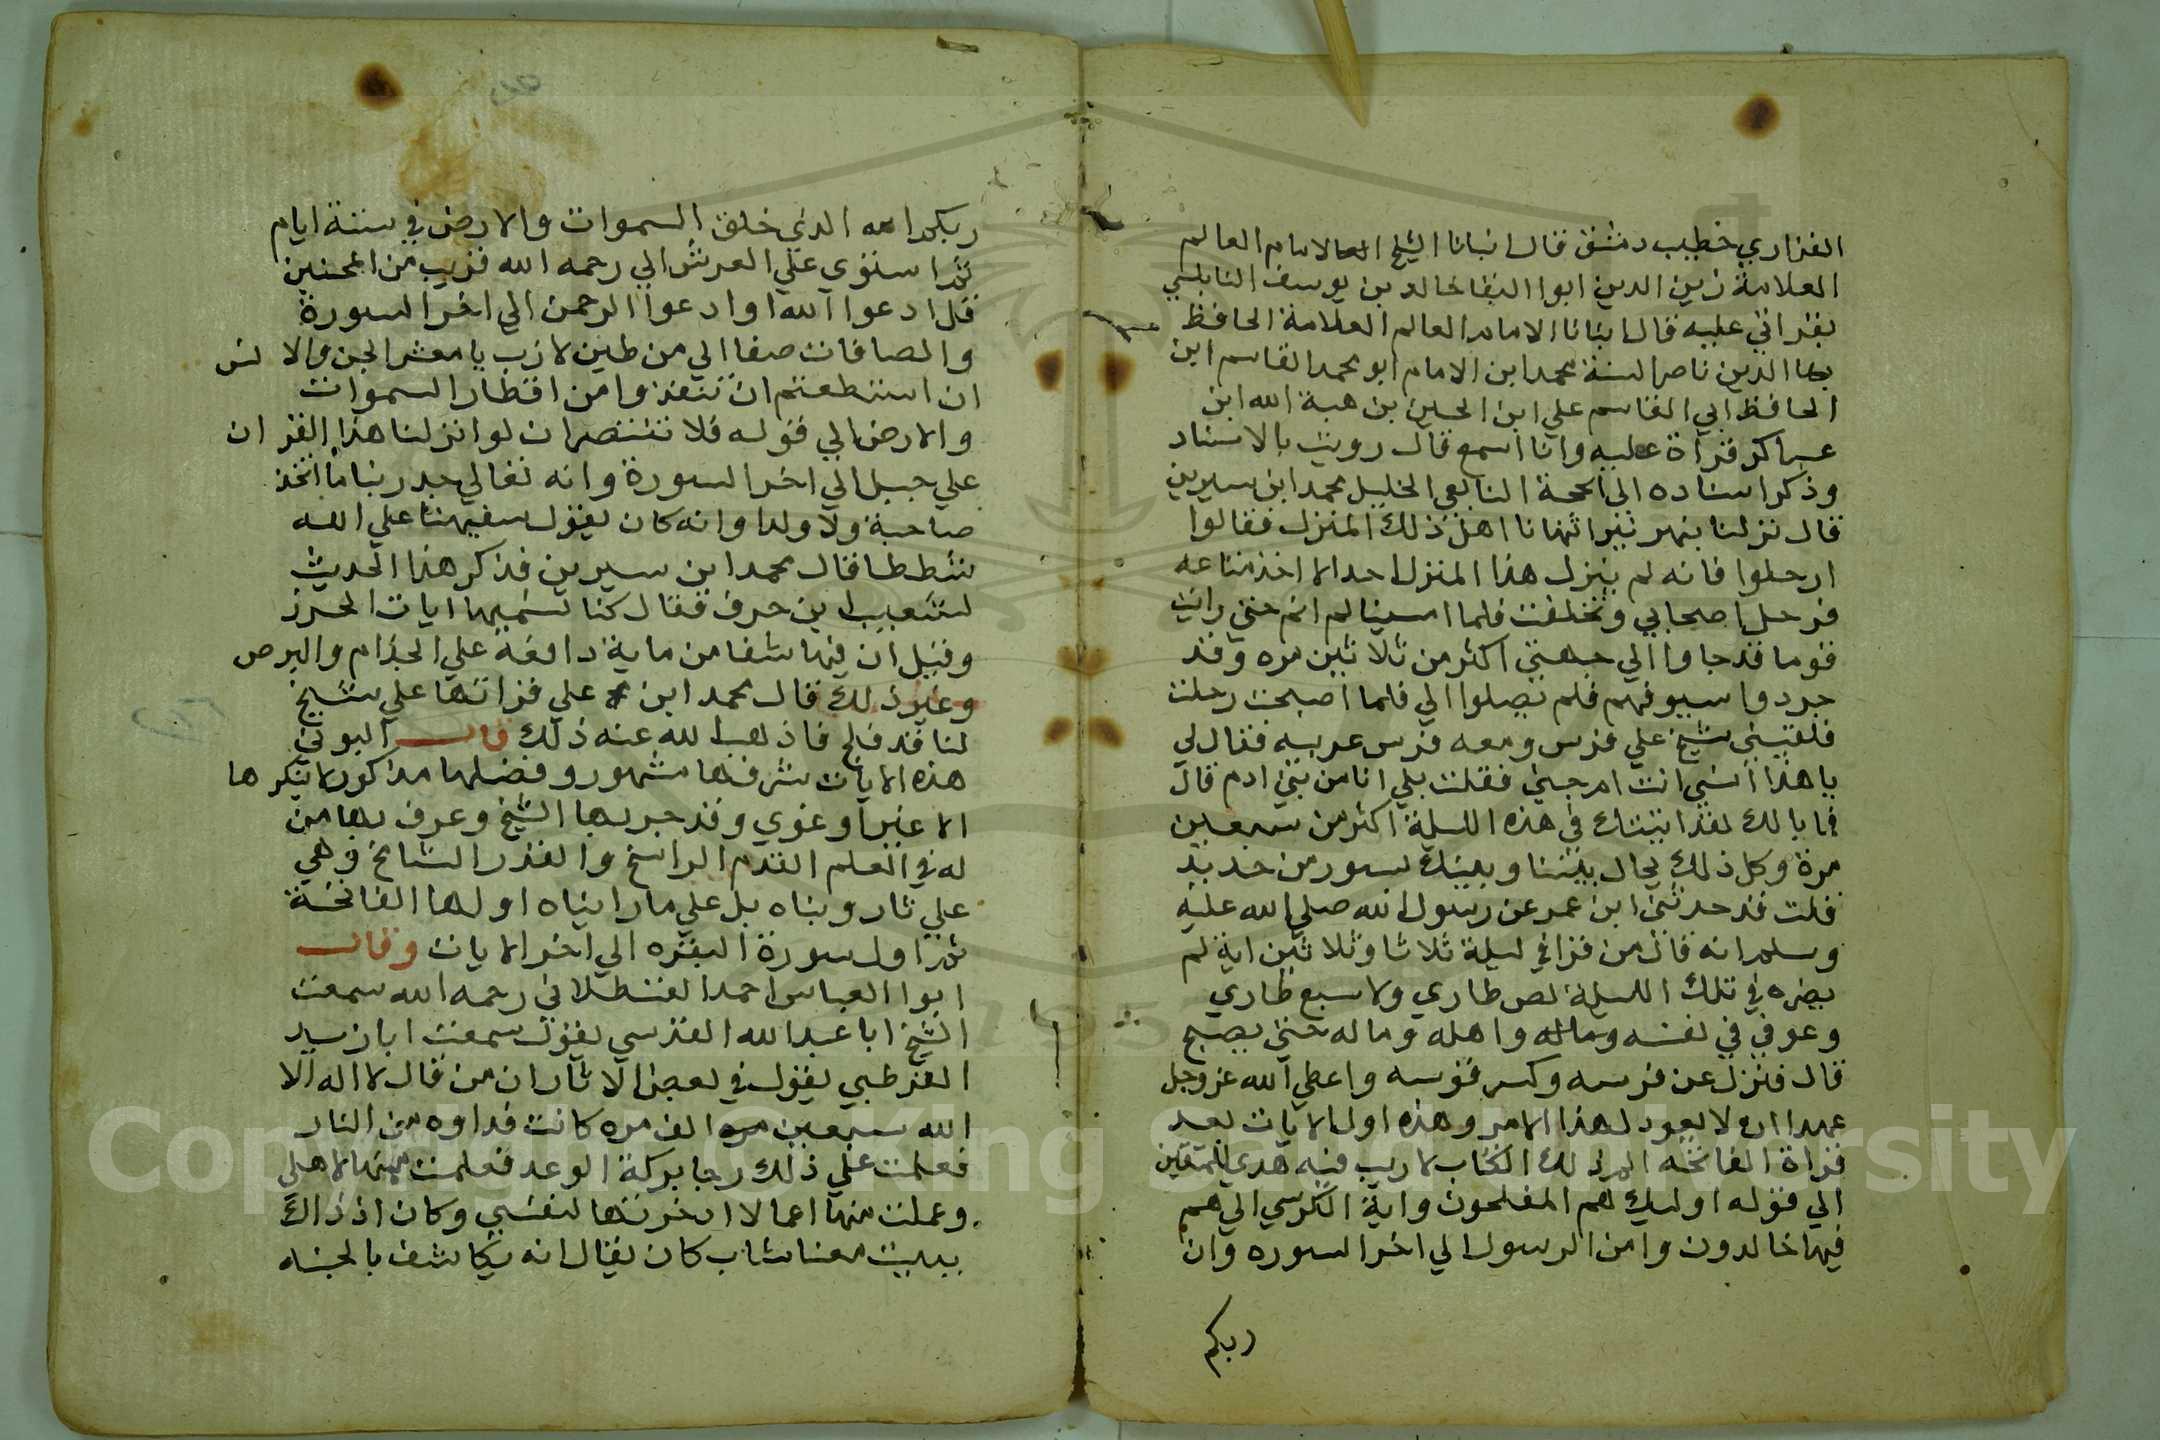 الفزاري خطيب دمشق قال انبانا الشيخ الامام العالم
العلامة زين الدين ابوا البقا خالد بن يوسف النابلسي
بقراتي عليه قال انبانا الامام العالم العلامة الحافظ
بها الدين ناصر السنة محمد ابن الامام ابو محمد القاسم ابن
الحافظ ابي القاسم علي ابن الحسين بن هبة الله ابن
عساكر قراة عليه وانا اسمع قال رويت بالاسناد
وذكر اسناده الى الحجة التابعي الخليل محمد ابن سيرين
قال نزلنا بنهر تيرا تهانا اهل ذلك المنزل فقالوا
ارحلوا فانه لم ينزل هذا المنزل احد الا اخذ متاعه
فرحل اصحابي وتخلفت فلما امسينا لم انم حتى رايت
قوما قد جاوا الي جهتي اكثر من ثلاثين مره وقد
جردوا سيوفهم فلم يصلوا الي فلما اصبحت رحلت
فلقيني شيخ علي فرس ومعه فرس عربيه فقال لي
يا هذا انسي انت ام جني فقلت بلي انا من بني ادم قال
فما بالك لقد اتيتك في هذه الليلة اكثر من سبعين
مرة وكل ذلك يحال بيننا وبينك بسور من حديد
قلت قد حدثني ابن عمر عن رسول الله صلي الله عليه
وسلم انه قال من قرا في ليلة ثلاثا وثلاثين اية لم
يضره في تلك الليلة لص طاري ولا سبع ظاري
وعوفي في نفسه وماله واهله وماله حتى يصبح
قال فنزل عن فرسه وكسر قوسه واعطي الله عز وجل
عهدا ان لا يعود لهذا الامر وهذه اول الايات بعد
قراة الفاتحة الم ذلك الكتاب لا ريب فيه هدي للمتقين
الي قوله اوليك هم المفلحون واية الكرسي الي هم
فيها خالدون وامن الرسول الي اخر السوره وان
ربكم
ربكم الله الذي خلق السموات والارض في ستة ايام
ثم استوي علي العرش الي رحمه الله قريب من المحسنين
قل ادعوا الله او ادعوا الرحمن الي اخر السورة
والصافات صفا الي من طين لازب يا معشر الجن والانس
ان استطعتم ان تنفذوا من اقطار السموات
والارض الي قوله فلا تنتصران لو انزلنا هذا القران
علي جبل الي اخر السورة وانه تعالي جد ربنا ما اتخذ
صاحبة ولا ولدا وانه كان يقول سفيهنا علي الله
شططا قال محمد ابن سيرين فذكر هذا الحديث
لشعيب بن حرف فقال كنا نسميها ايات الحرز
وقيل ان فيها شفا من ماية دافعة علي الجذام والبرص
وغير ذلك قال محمد ابن علي قراتها علي شيخ
لنا قد فلج فاذهب الله عنه ذلك قال البوني
هذه الايات شرفها مشهور وفضلها مذكور لا ينكرها
الا غبي او غوي وقد جربها الشيخ وعرف بها من
له في العلم القدم الراسخ والقدر الشامخ وهي
علي ما رويناه بل علي ما رايناه اولها الفاتحة
ثم اول سورة البقره الي اخر الايات وقال
ابوا العباس احمد القسطلاني رحمه الله سمعت
الشيخ ابا عبد الله القرسي يقول سمعت ابا زيد
القرطبي يقول في بعض الاثار ان من قال لا اله الا
الله سبعين الف مره كانت فداوه من النار
فعملت علي ذلك رجا بركة الوعد فعملت منها لاهلي
وعملت منها اعمالا ادخرتها لنفسي وكان اذ ذاك
يبيت معنا شاب كان يقال انه يكاشف بالجنه
Copyright © King Saud University